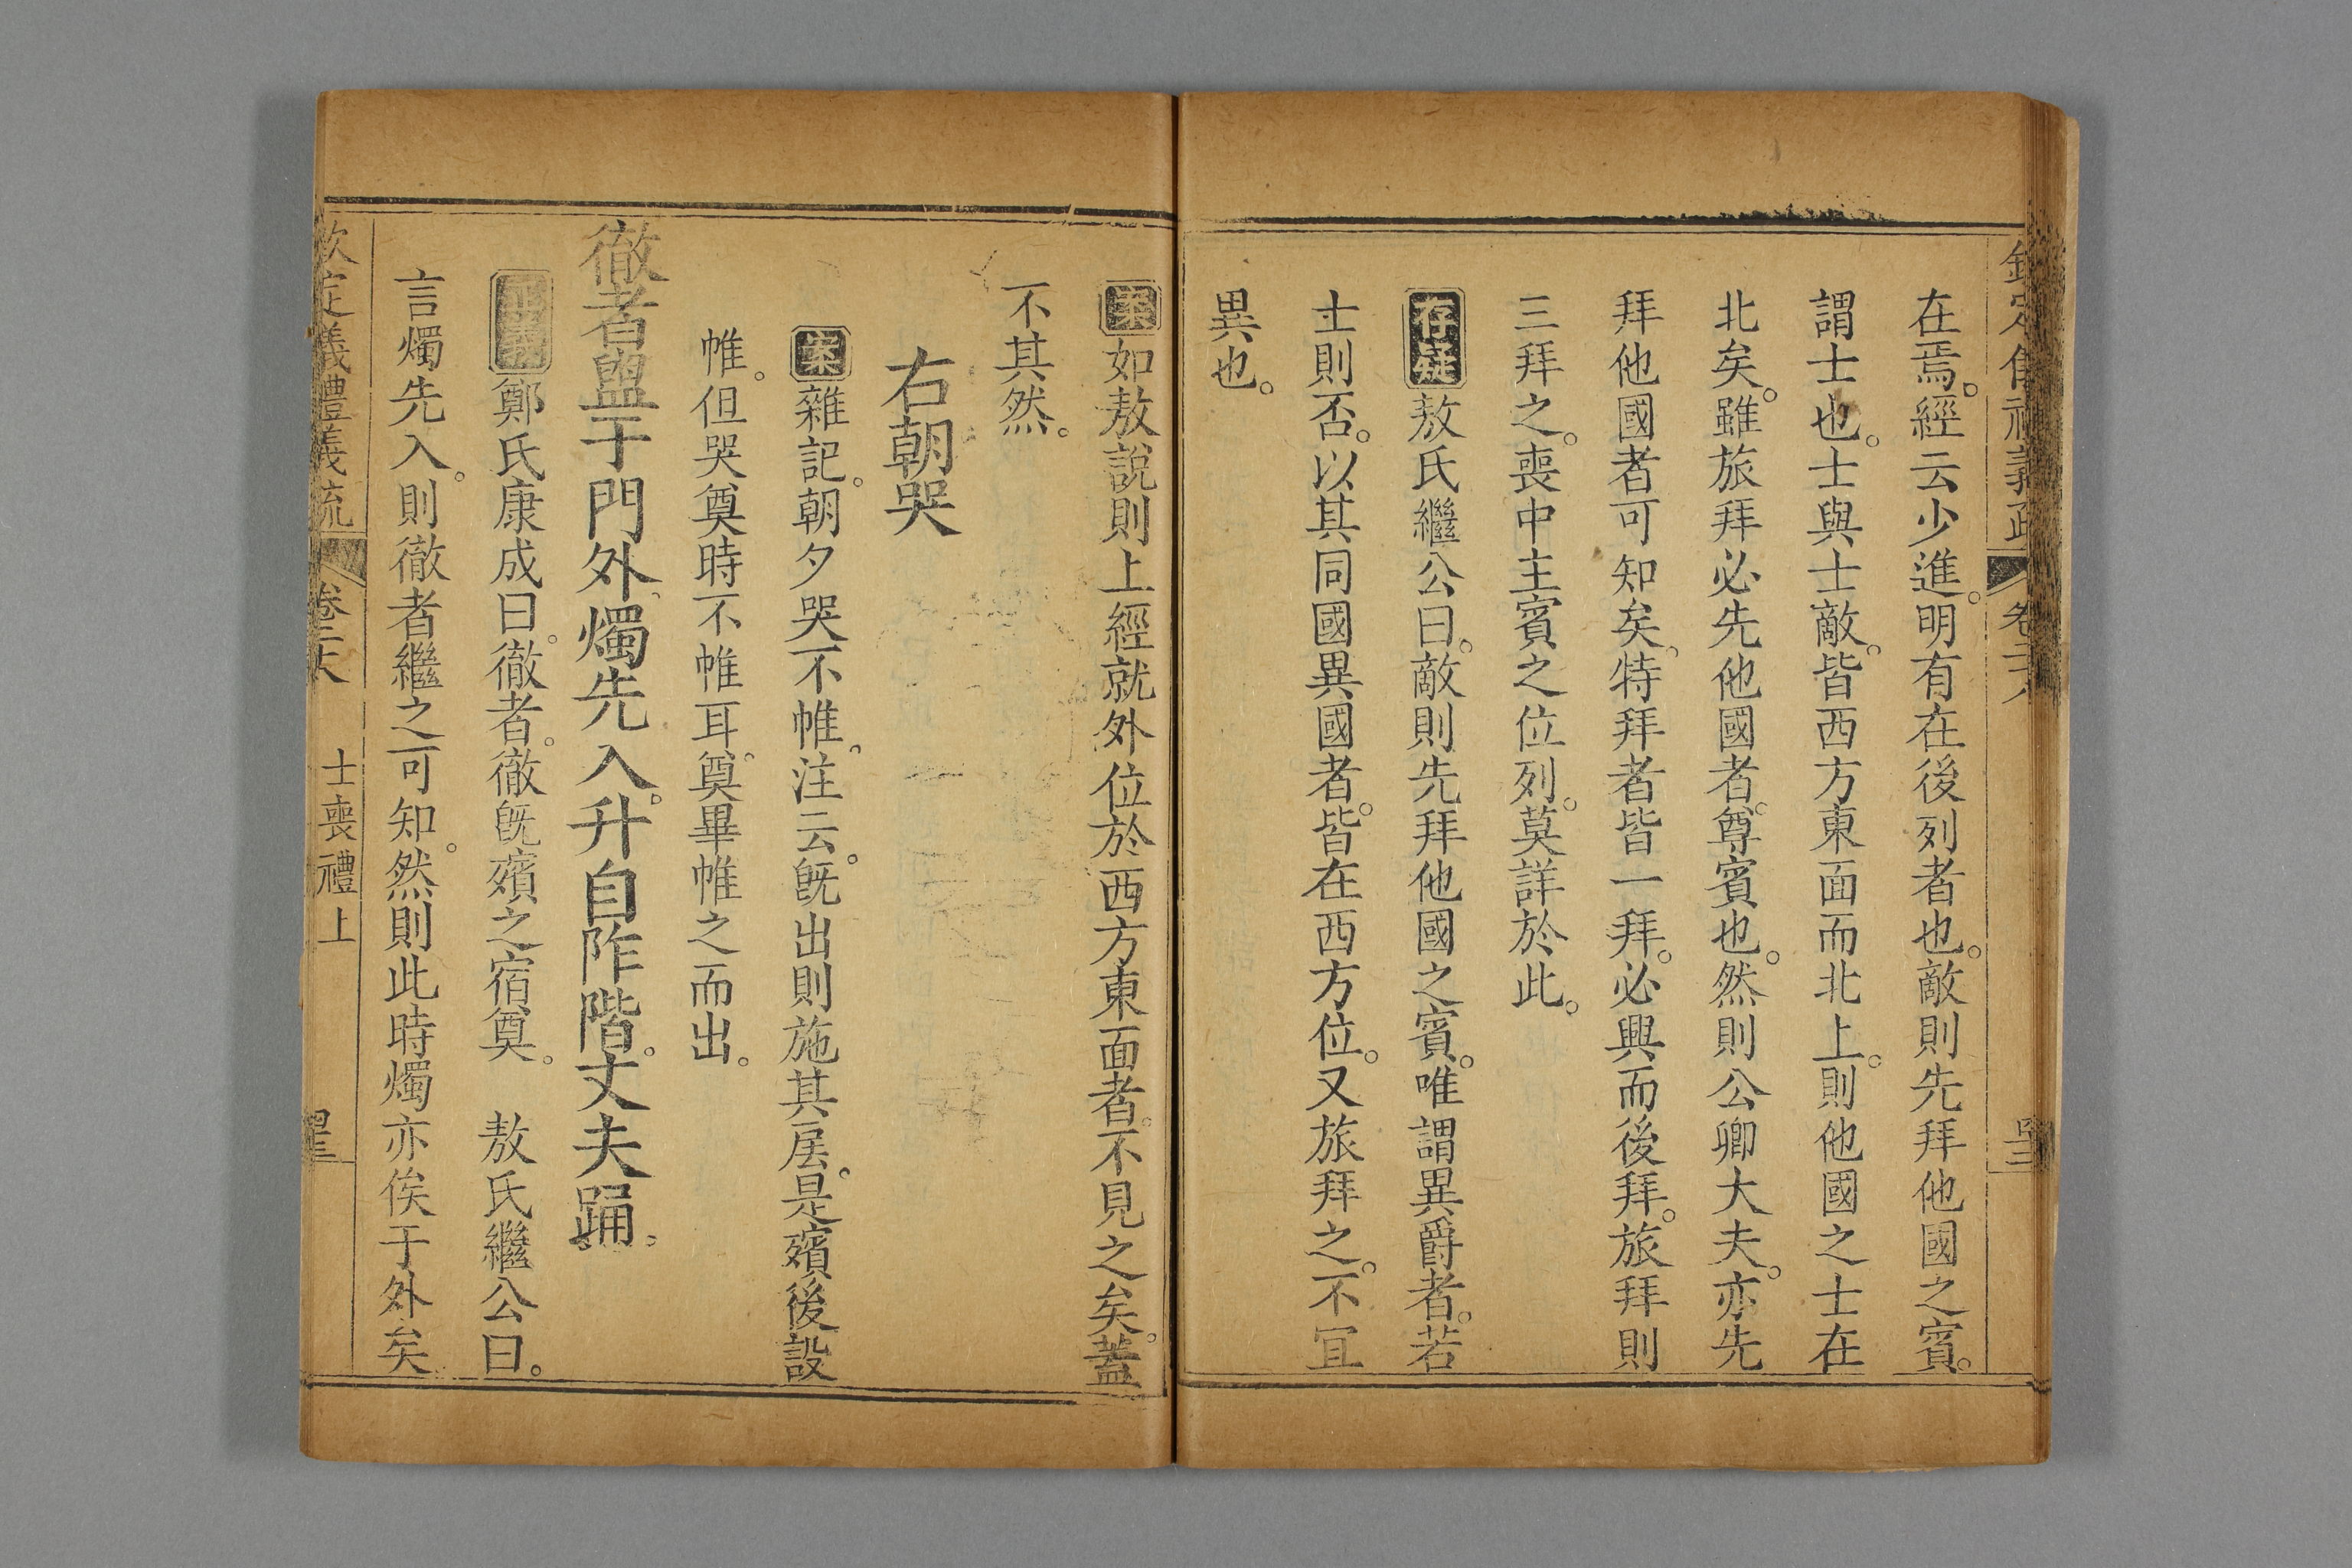 在焉。經云少進。明有在後列者也。敵則先拜他國之賓。
謂士也。士與士敵。皆西方東面而北上。則他國之士在
北矣。雖旅拜必先他國者。尊賓也。然則公卿大夫。亦先
拜他國者可知矣。特拜者皆一拜。必興而後拜。旅拜則
三拜之。喪中主賓之位列。莫詳於此。
存疑敖氏繼公曰。敵則先拜他國之賓。唯謂異爵者。若
士則否。以其同國異國者。皆在西方位。又旅拜之。不宜
異也。
案如敖說則上經就外位於西方東面者。不見之矣。蓋
不其然。
右朝哭
案雜記。朝夕哭不帷。注云。旣出則施其扂。是殯後設
帷。但哭奠時不帷耳。奠畢帷之而出。
徹者盥于門外。燭先入。升自阼階。丈夫踊。
正義鄭氏康成曰。徹者。徹旣殯之宿奠。 敖氏繼公曰。
言燭先入。則徹者繼之可知。然則此時燭亦俟于外矣
欽定儀禮義疏 卷二十八 士喪禮上